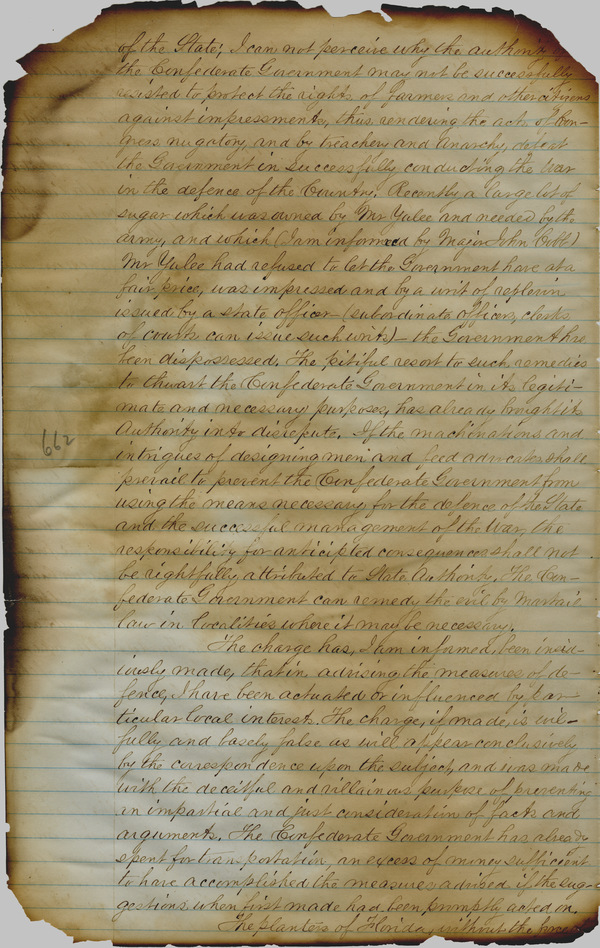 of the State; I can not perceive why the authority
the Confederate Government may not be successfully
resisted to protect the rights of farmers and other citizens
against impressments, thus rendering the acts of Con-
gress nugatory, and by treachery and anarchy, defeat
the Government in successfully conducting the War
in the defence of the Country. Recently a large lot of
sugar which was owned by Mr Yulee and needed by the
army, and which (I am informed by Major John Cobb)
Mr Yulee had refused to let the Government have at a
fair price, was impressed and by a writ of replevin
issued by a state officer (subordinate officers, clerks
of courts can issue such writs) the Government has
been dispossessed. The pitiful resort to such remedies
to thwart the Confederate Government in its legiti-
mate and necessary purposes, has already brought its
Authority into disrepute. If the machinations and
intrigues of designing men and feed advocates shall
prevail to prevent the Confederate Government from
using the means necessary for the defence of the State
and the successful management of the War, the
responsibility for anticipted consequences shall not
be rightfully attributed to State Authority. The Con-
federate Government can remedy the evil by martail
law in localities where it may be necessary.
The charge has, I am informed, been insid-
iously made, that in advising the measures of de-
fence, I have been actuated or influenced by par-
ticular local interests. The charge, if made, is wil-
fully and basely false as will appear conclusively
by the correspondence upon the subject, and was made
with the deceitful and villainous purpose of preventing
an impartial and just consideration of facts and
arguments. The Confederate Government has already
spent for transportation, an excess of money sufficient
to have accomplished the measures advised if the sug-
gestions when first made had been promptly acted on.
The planters of Florida, without the
662